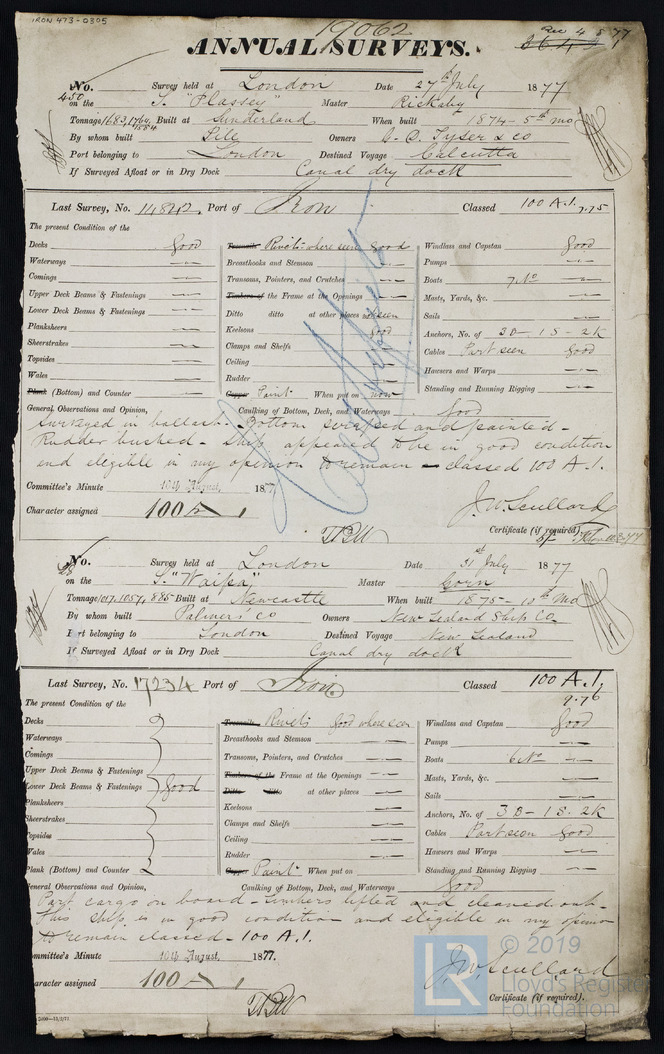 IRON 473-0305
19062
Rec 4 8 77
ANNUAL SURVEYS.
No. 450 Survey held at London Date 27th July 1877
on the S. "Plassey" Master Rickaby
Tonnage 1683, 1764, 1584 Built at Sunderland When built 1874 - 5th mo
By whom built Pile Owners G. D. Tyser & Co
Port belonging to London Destined Voyage Calcutta
If Surveyed Afloat or in Dry Dock Canal dry dock
Last Survey, No. 14842, Port of Iron Classed 100 A.1. 7.75
The present Condition of the
Decks good Rivets where seen good Windlass and Capstan good
Waterways Breasthooks and Stemson Pumps
Comings Transoms, Pointers, and Crutches Boats 7 No
Upper Deck Beams & Fastenings Timbers of the Frame at the Openings Masts, Yards, &c.
Lower Deck Beams & Fastenings Ditto ditto at other places Sails
Planksheers Keelsons good Anchors, No. of 3B - 1S - 2K
Sheerstrakes Clamps and Shelfs Cables Part seen good
Topsides Ceiling Hawsers and Warps
Wales Rudder Standing and Running Rigging
Plank (Bottom) and Counter Copper Paint When put on now
General Observations and Opinion, Caulking of Bottom, Deck, and Waterways good
Surveyed in ballast. Bottom scraped and painted -
Rudder bushed - Ship appeared to be in good condition
and elegible in my opinion to remain classed 100 A.1.
Committee's Minute 10th August, 1877
Character assigned 100 A 1
J. W. Scullard
Certificate (if required).
No. Survey held at London Date 31st July 1877
on the S. "Waipa" Master Gorn
Tonnage 1017, 1057, 885 Built at Newcastle When built 1875 - 10th Mo
By whom built Palmers Co Owners New Zealand Ship Co
Port belonging to London Destined Voyage New Zealand
If Surveyed Afloat or in Dry Dock Canal dry dock
Last Survey, No. 17234 Port of Iron Classed 100 A.1.
9.76
The present Condition of the
Decks Treenails Rivets good where seen Windlass and Capstan good
Waterways Breasthooks and Stemson Pumps
Comings Transoms, Pointers, and Crutches Boats 6 No
Upper Deck Beams & Fastenings Timbers of the Frame at the Openings Masts, Yards, &c.
Lower Deck Beams & Fastenings good Ditto ditto at other places Sails
Planksheers Keelsons Anchors, No. of 3B - 1S. 2K
Sheerstrakes Clamps and Shelfs Cables Part seen good
Topsides Ceiling Hawsers and Warps
Wales Rudder Standing and Running Rigging
Plank (Bottom) and Counter Copper Paint When put on
General Observations and Opinion, Caulking of Bottom, Deck, and Waterways good
Part cargo on board - Limbers lifted and cleaned out -
This ship is in good condition and eligible in my opinion
to remain classed - 100 A.1.
Committee's Minute 10th August, 1877.
Character assigned 100 A 1
J. W. Scullard
Certificate (if required).
LR © 2019
Lloyd's Register
Foundation